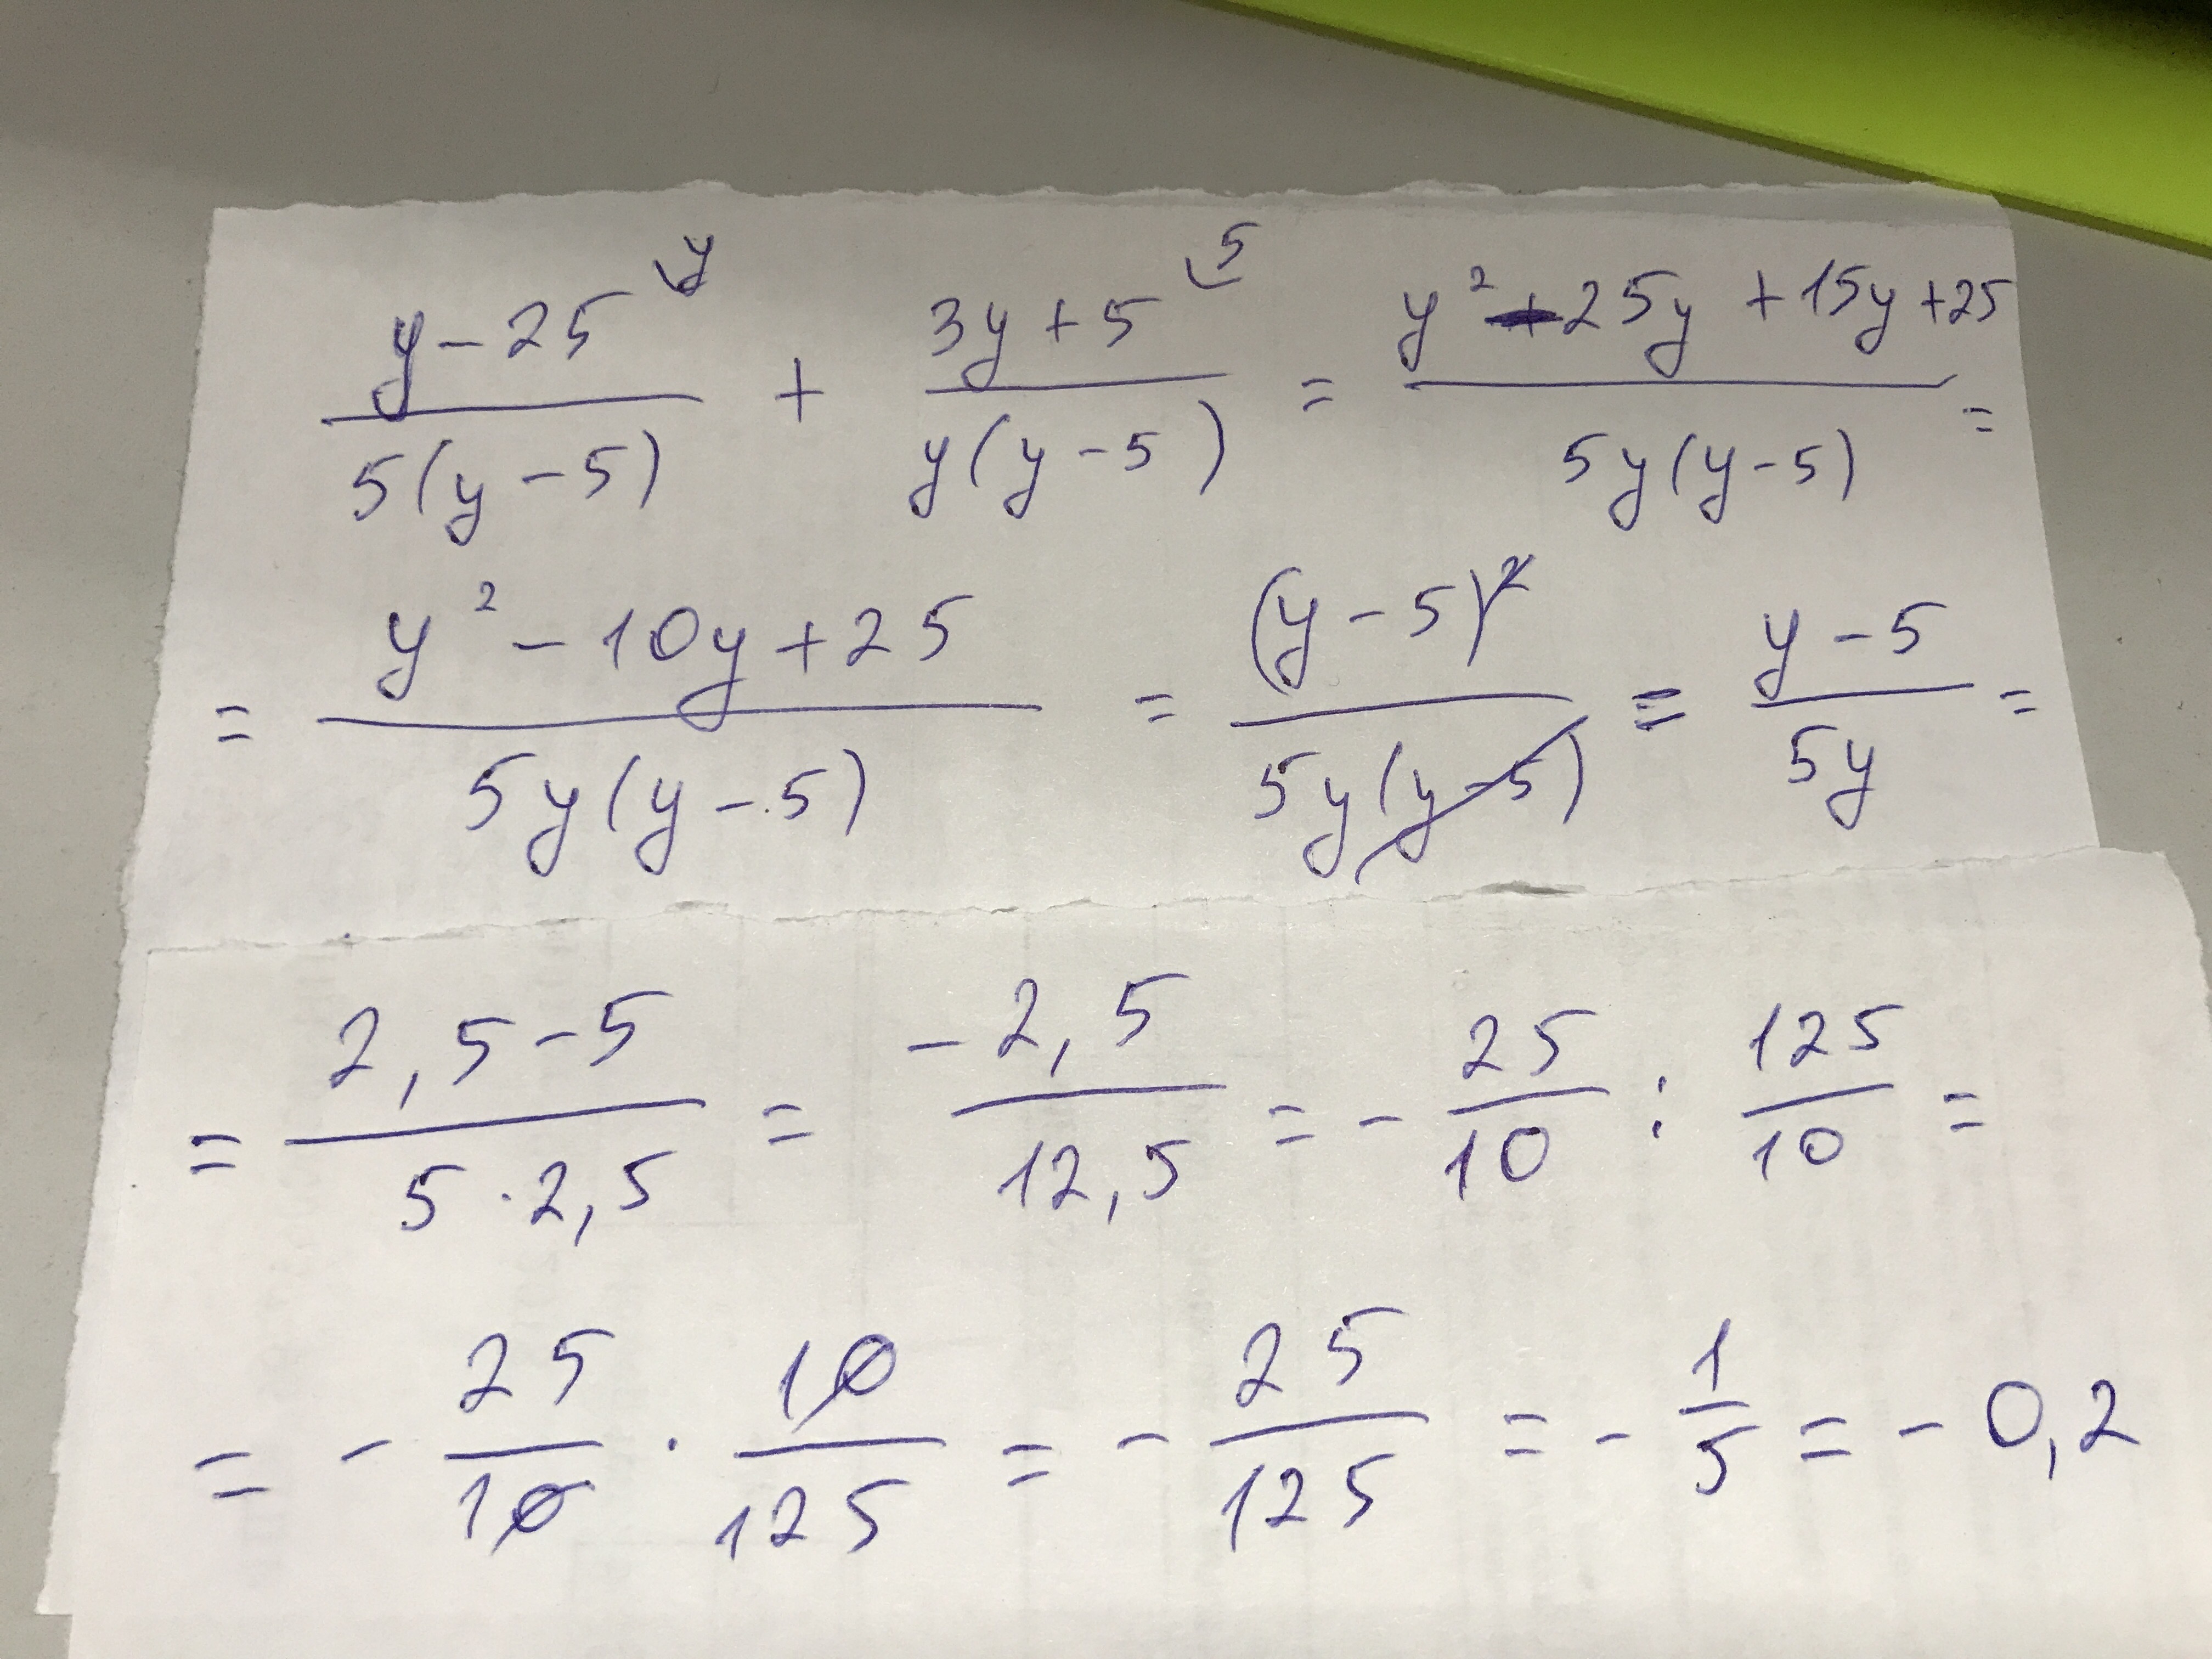 (y-25)^y/(5(y-5)) + (3y+5)^5/(y(y-5)) = (y²-25y+15y+25)/(5y(y-5)) =
= (y²-10y+25)/(5y(y-5)) = (y-5)²/(5y(y-5)) = (y-5)/(5y) =
= (2,5-5)/(5·2,5) = -2,5/12,5 = - 25/10 : 125/10 =
= - 25/10 · 10/125 = - 25/125 = - 1/5 = - 0,2